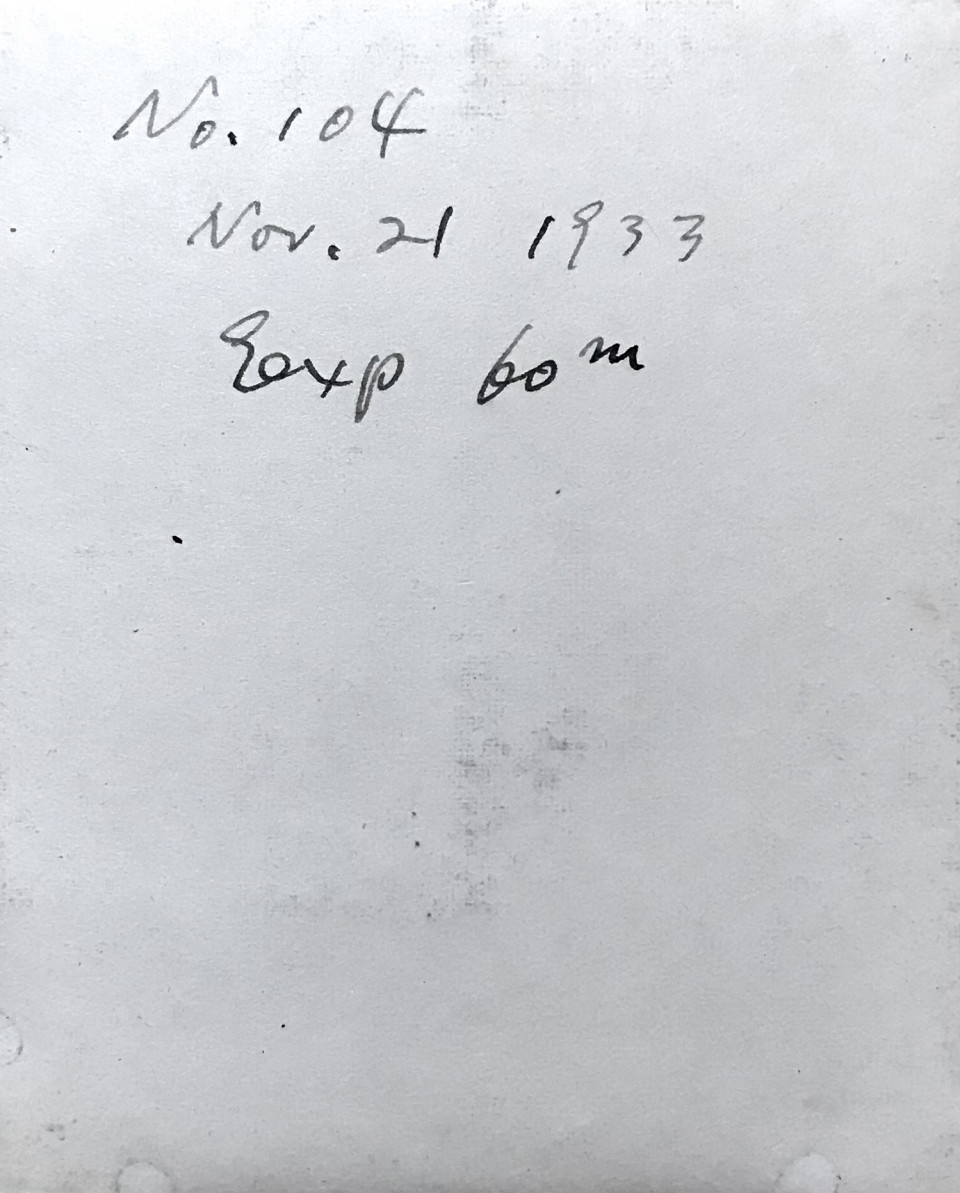 No. 104
Nov. 21 1933
Exp 60 m